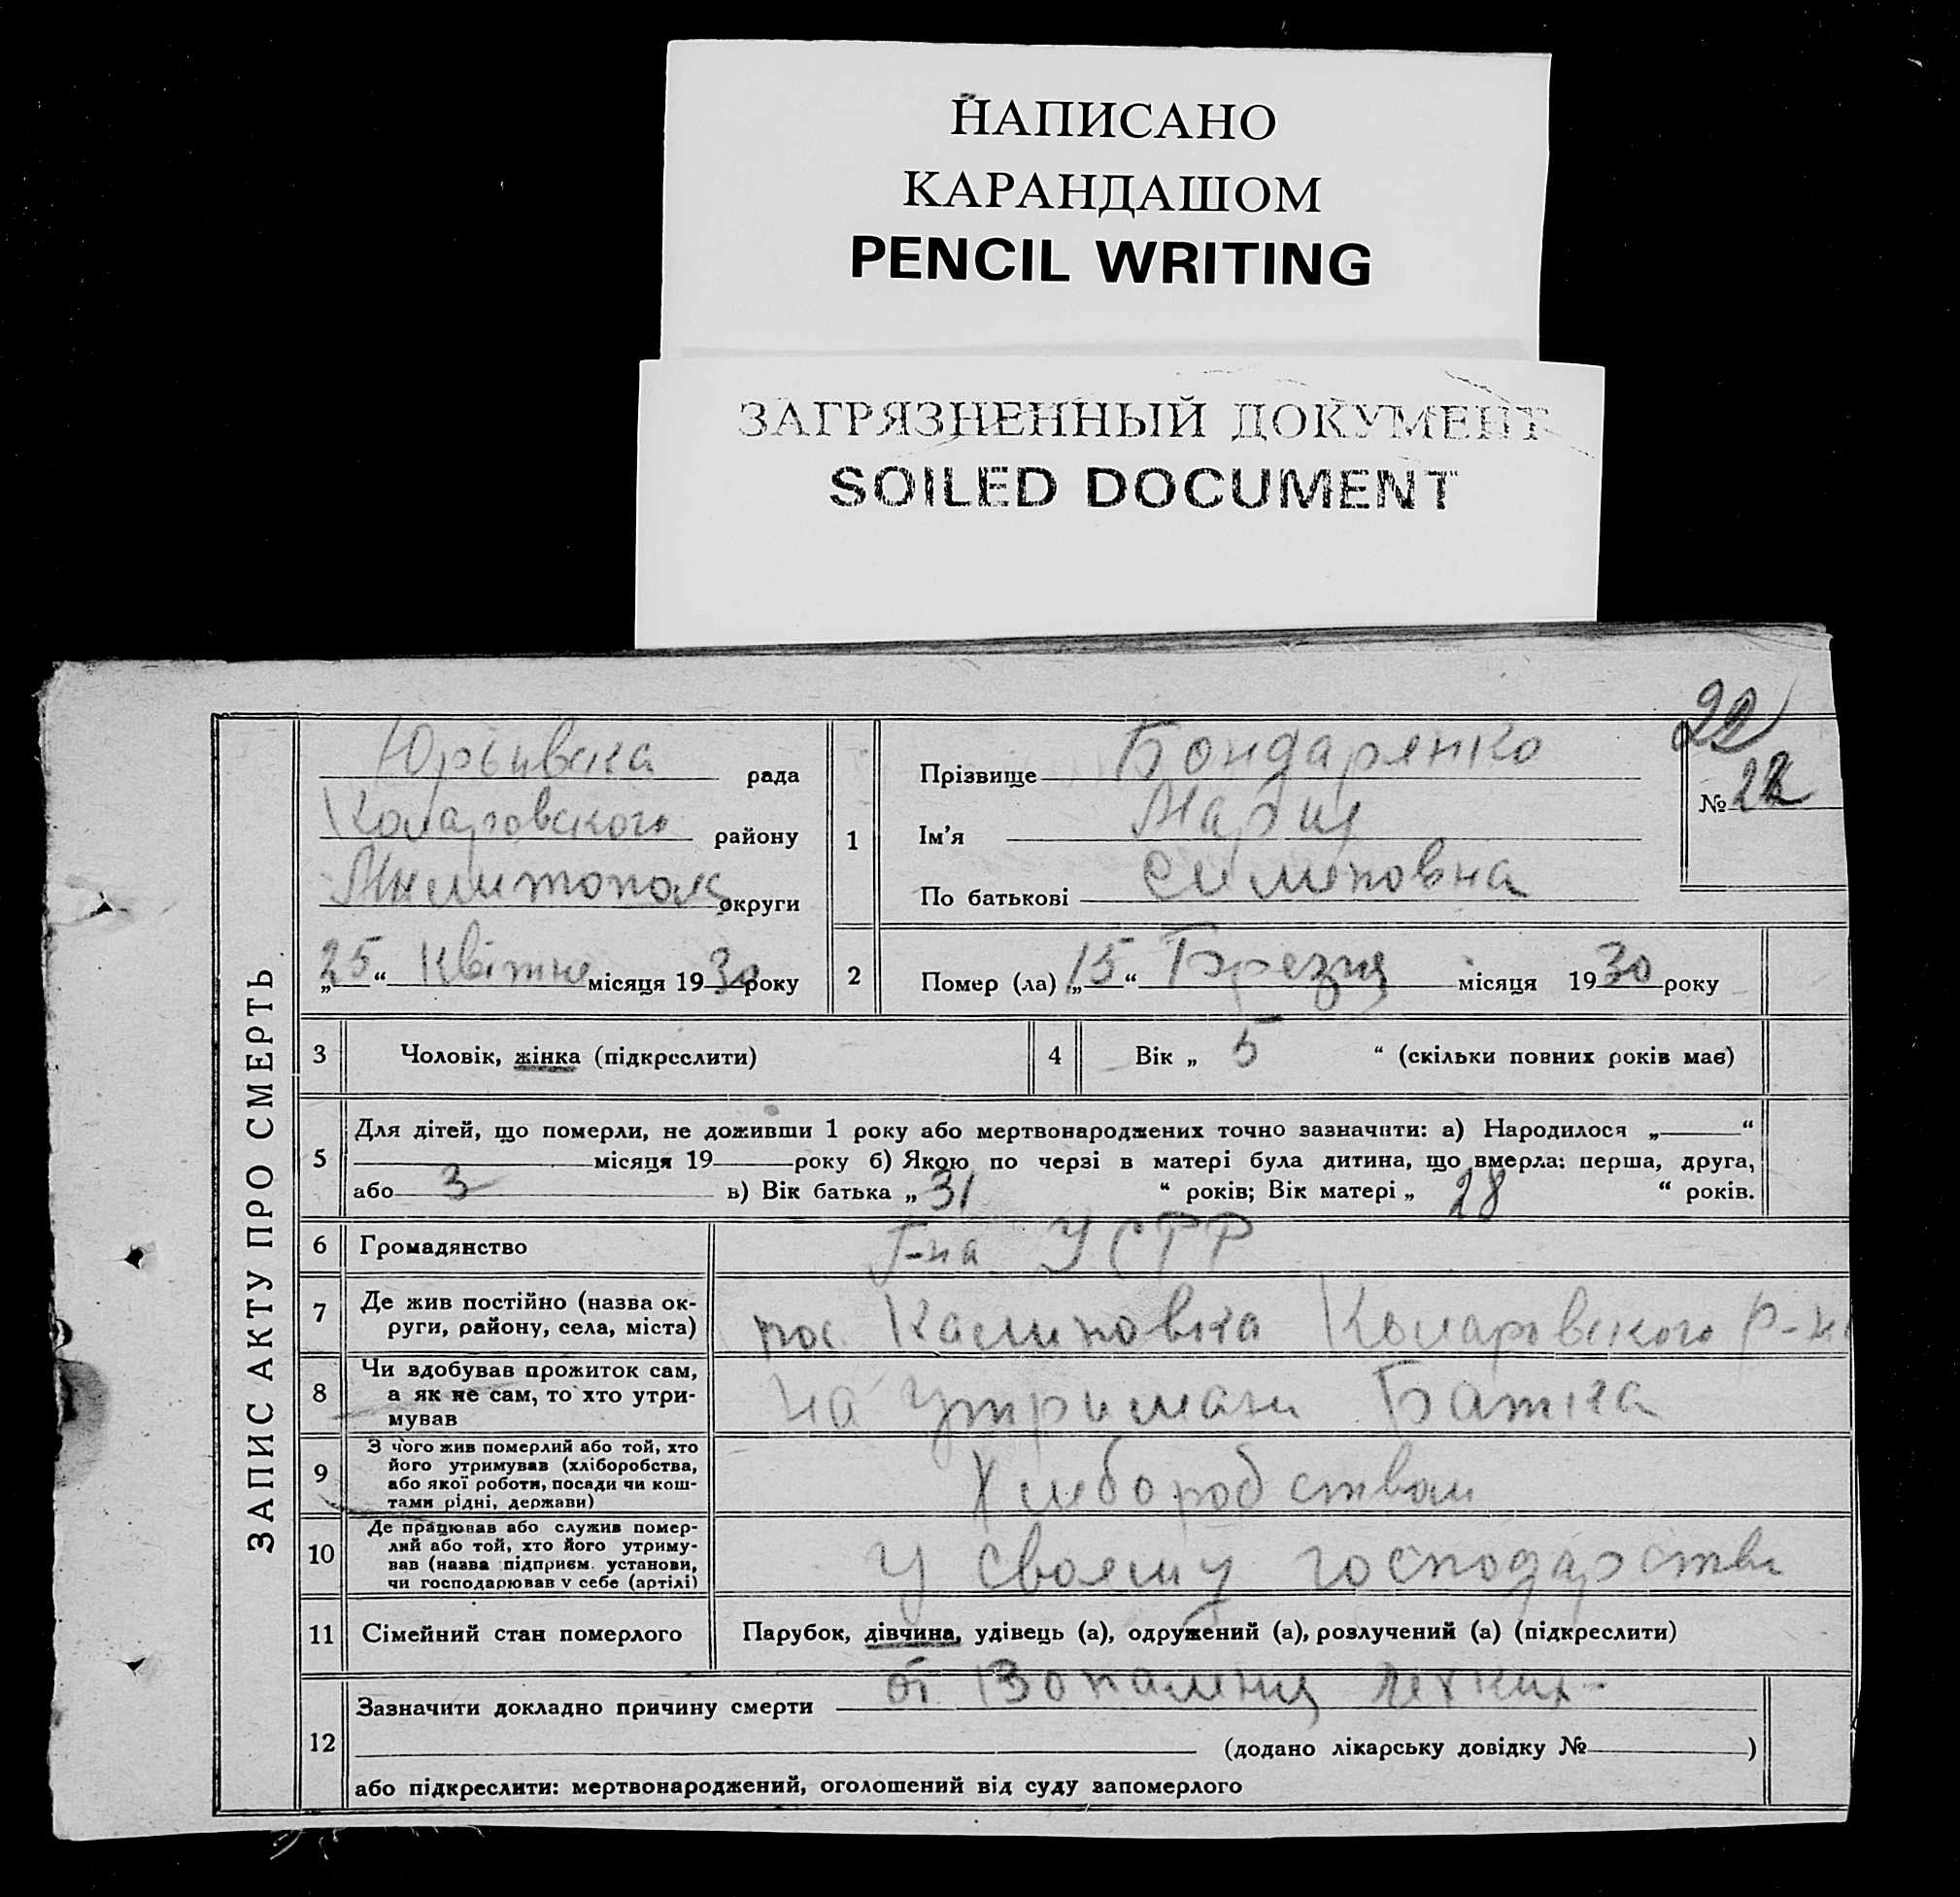 НАПИСАНО
КАРАНДАШОМ
PENCIL WRITING
ЗАГРЯЗНЕННЫЙ ДОКУМЕНТ
SOILED DOCUMENT
22
№ 22
ЗАПИС АКТУ ПРО СМЕРТЬ
Юрьивска рада
Коларовского району
Мелитопол округи
„25“ Квітня місяця 1930 року
1
Прізвище Бондаренко
Ім’я Мария
По батькові Симоновна
2 Помер (ла) „15“ Березня місяця 1930 року
3 Чоловік, жінка (підкреслити)
4 Вік „ 5 “ (скільки повних років має)
5 Для дітей, що померли, не доживши 1 року або мертвонароджених точно зазначити: а) Народилося „ “
місяця 19 року б) Якою по черзі в матері була дитина, що вмерла: перша, друга,
або 3 в) Вік батька „ 31 “ років; Вік матері „ 28 “ років.
6 Громадянство Г-на УСРР
7 Де жив постійно (назва ок-
руги, району, села, міста) пос. Калиновка Коларовского р-н
8 Чи здобував прожиток сам,
а як не сам, то хто утри-
мував на утримани Батка
9 З чого жив померлий або той, хто
його утримував (хліборобства,
або якої роботи, посади чи кош-
тами рідні, держави) Хлебородством
10 Де працював або служив помер-
лий або той, хто його утриму-
вав (назва підприєм. установи,
чи господарював у себе (артілі) у своему господарстви
11 Сімейний стан померлого Парубок, дівчина, удівець (а), одружений (а), розлучений (а) (підкреслити)
12 Зазначити докладно причину смерти от Вопаления легких
(додано лікарську довідку № )
або підкреслити: мертвонароджений, оголошений від суду запомерлого